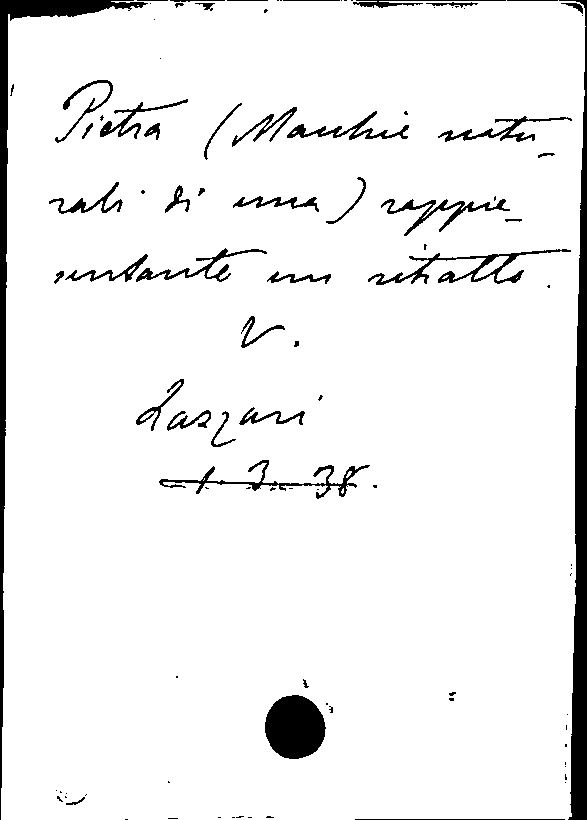 Pietra (Macchie natu-
rali di una) rappre-
sentante un ritratto.
V.
Lazzari
1. 3. 38.